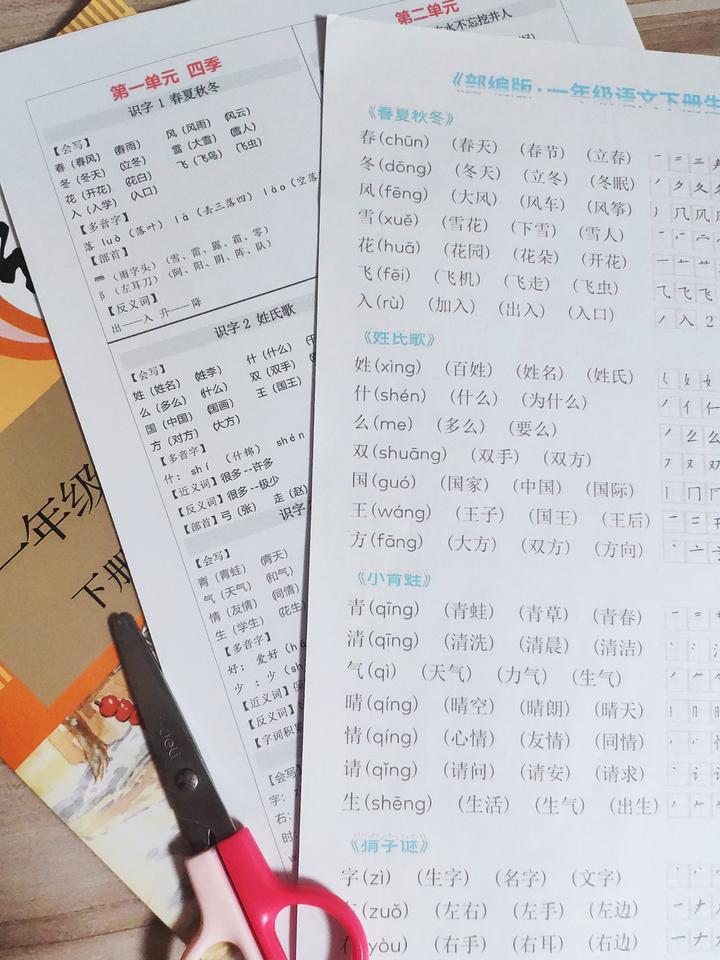 第一单元 四季
识字 1 春夏秋冬
【会写】
春（春风）（春雨） 风（风雨）（风云）
冬（冬天）（立冬） 雪（大雪）（雪人）
花（开花）（花白） 飞（飞鸟）（飞虫）
入（入学）（入口）
【多音字】
落 luò（落叶） là（丢三落四） lào（空落
【部首】
（雨字头）（雪、雷、露、霜、零）
阝（左耳刀）（阿、阳、阴、阵、队）
【反义词】
出——入 升——降
识字 2 姓氏歌
【会写】
姓（姓名）（姓李） 什（什么）
么（多么）（什么） 双（双手）
国（中国）（国画） 王（国王）
方（对方）（大方）
【多音字】
什：shí（什锦） shén
【近义词】很多--许多
【反义词】很多--极少
【部首】弓（张） 走（赵）
识字
【会写】
青（青蛙）（青天）
气（天气）（和气）
情（友情）（同情）
生（学生）（花生）
【多音字】
好：爱好（hà
少：少（sh
【近义词】
【反义词】
【字词积累
【会写】
字：
右：
时：
第二单元
水不忘挖井人
《部编版·一年级语文下册生
《春夏秋冬》
春(chūn) （春天） （春节） （立春）
冬(dōng) （冬天） （立冬） （冬眠）
风(fēng) （大风） （风车） （风筝）
雪(xuě) （雪花） （下雪） （雪人）
花(huā) （花园） （花朵） （开花）
飞(fēi) （飞机） （飞走） （飞虫）
入(rù) （加入） （出入） （入口）
《姓氏歌》
姓(xìng) （百姓） （姓名） （姓氏）
什(shén) （什么） （为什么）
么(me) （多么） （要么）
双(shuāng) （双手） （双方）
国(guó) （国家） （中国） （国际）
王(wáng) （王子） （国王） （王后）
方(fāng) （大方） （双方） （方向）
《小青蛙》
青(qīng) （青蛙） （青草） （青春）
清(qīng) （清洗） （清晨） （清洁）
气(qì) （天气） （力气） （生气）
晴(qíng) （晴空） （晴朗） （晴天）
情(qíng) （心情） （友情） （同情）
请(qǐng) （请问） （请安） （请求）
生(shēng) （生活） （生气） （出生）
《猜字谜》
字(zì) （生字） （名字） （文字）
(zuǒ) （左右） （左手） （左边）
右(yòu) （右手） （右耳） （右边）
一年级
下册
deli